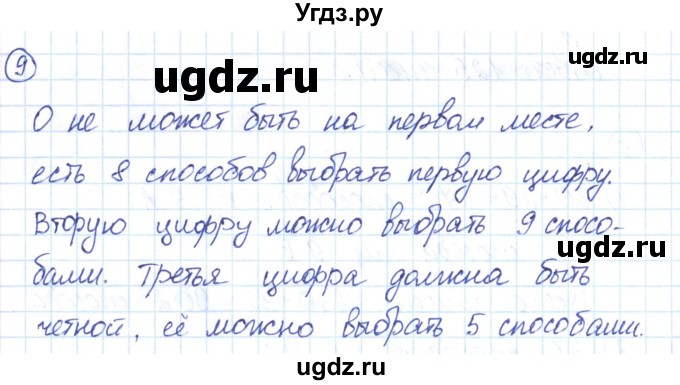 Угдз.ру
9
ugdz.ru
ugdz.ru
0 не может быть на первом месте,
есть 8 способов выбрать первую цифру.
ugdz.ru
Вторую цифру можно выбрать 9 спосо-
ugdz.ru
бами. Третья цифра должна быть
четной, её можно выбрать 5 способами.
ugdz.ru